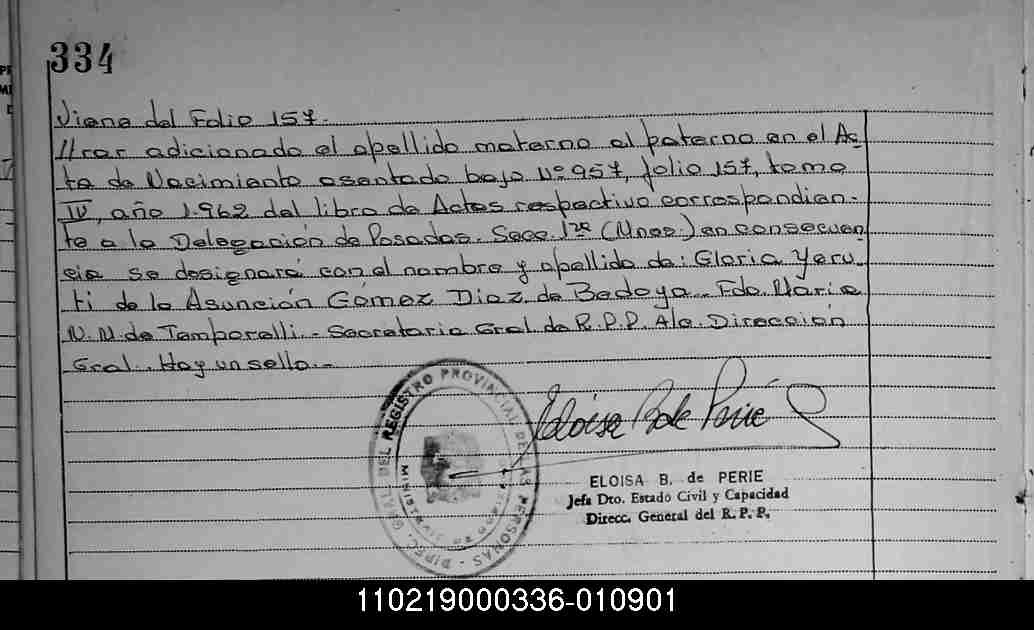 334
Viene del Folio 157.
llvar adicionado el apellido materno al paterno en el Ac-
ta de Nacimiento asentado bajo Nº 957, folio 157, tomo
IV, año 1.962 del libro de Actas respectivo correspondien-
te a la Delegación de Posadas. Secc. 1ra (Mnes.) en consecuen
cia se designará con el nombre y apellido de: Gloria Yeru
ti de la Asunción Gómez Diaz de Bedoya. Fdo. María
N. N. de Temporelli.- Secretaria Gral. de R.P.P. A/c. Dirección
Gral.. Hay un sello.-
DIREC. GRAL. DEL REGISTRO PROVINCIAL DE LAS PERSONAS
ELOISA B. de PERIE
Jefa Dto. Estado Civil y Capacidad
Direcc. General del R. P. P.
110219000336-010901